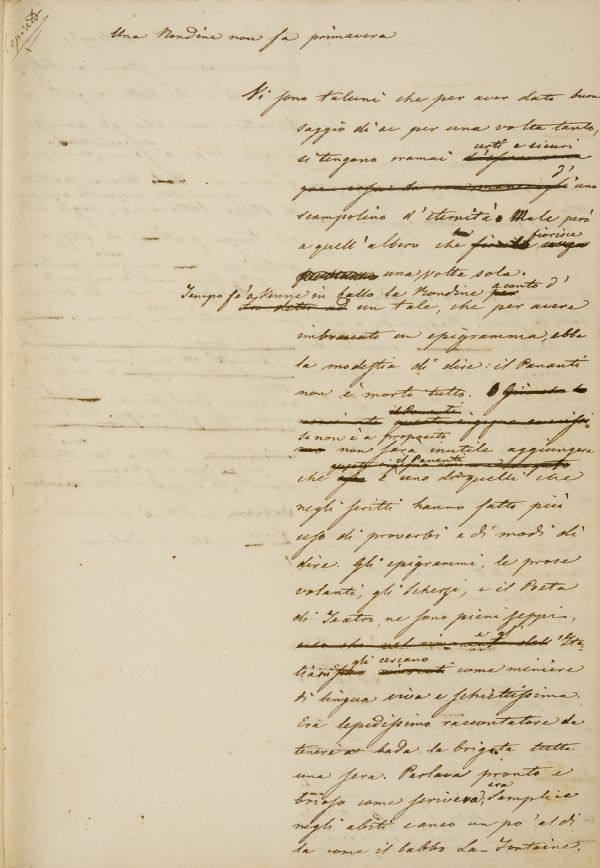 Copiato
Una Rondine non fa primavera
Vi sono taluni che per aver dato buon
saggio di se per una volta tanto,
certi e sicuri
si tengono oramai
d'
uno
scampolino d'eternità. Male però
a quell'albero che fiorisce
una volta sola.
Tempo fa venne in ballo la Rondine a conto d'
un tale, che per avere
imbroccato un epigramma, ebbe
la modestia di dire: il Pananti
non è morto tutto.
il Pananti
se non è a proposito
non sarà inutile aggiungere
il Pananti
che è uno di quelli che
negli scritti hanno fatto più
uso di proverbi e di modi di
dire. Gli epigrammi, le prose
volanti, gli Scherzi, e il Poeta
di Teatro, ne sono pieni zeppi,
e gl' Ita-
liani gli cercano come miniere
di lingua viva e schiettissima.
Era lepidissimo raccontatore da
tenere a bada la brigata tutta
una sera. Parlava pronto e
brioso come scriveva; era semplice
negli abiti e anco un po' al di
là come il babbo La-Fontaine.